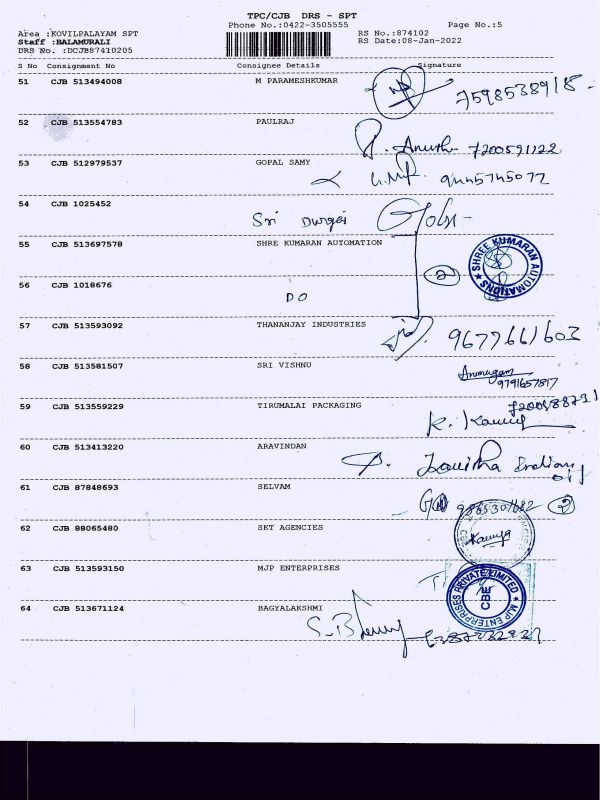 TPC/CJB DRS - SPT
Phone No.:0422-3505555 Page No.:5
Area :KOVILPALAYAM SPT RS No.:874102
Staff :BALAMURALI RS Date:08-Jan-2022
DRS No. :DCJB87410205
S No Consignment No Consignee Details Signature
51 CJB 513494008 M PARAMESHKUMAR
7598538918
52 CJB 513554783 PAULRAJ
P. Anusth 7200591122
53 CJB 512979537 GOPAL SAMY
9445745072
54 CJB 1025452
Sri Durgai
55 CJB 513697578 SHRE KUMARAN AUTOMATION
SHREE KUMARAN AUTOMATIONS
2
56 CJB 1018676
DO
57 CJB 513593092 THANANJAY INDUSTRIES
9677661603
58 CJB 513581507 SRI VISHNU
Arumugam
9791657817
59 CJB 513559229 TIRUMALAI PACKAGING
K.
60 CJB 513413220 ARAVINDAN
61 CJB 87848693 SELVAM
2
62 CJB 88065480 SKT AGENCIES
Kaumya
63 CJB 513593150 MJP ENTERPRISES
MJP ENTERPRISES PRIVATE LIMITED
CBE
64 CJB 513671124 BAGYALAKSHMI